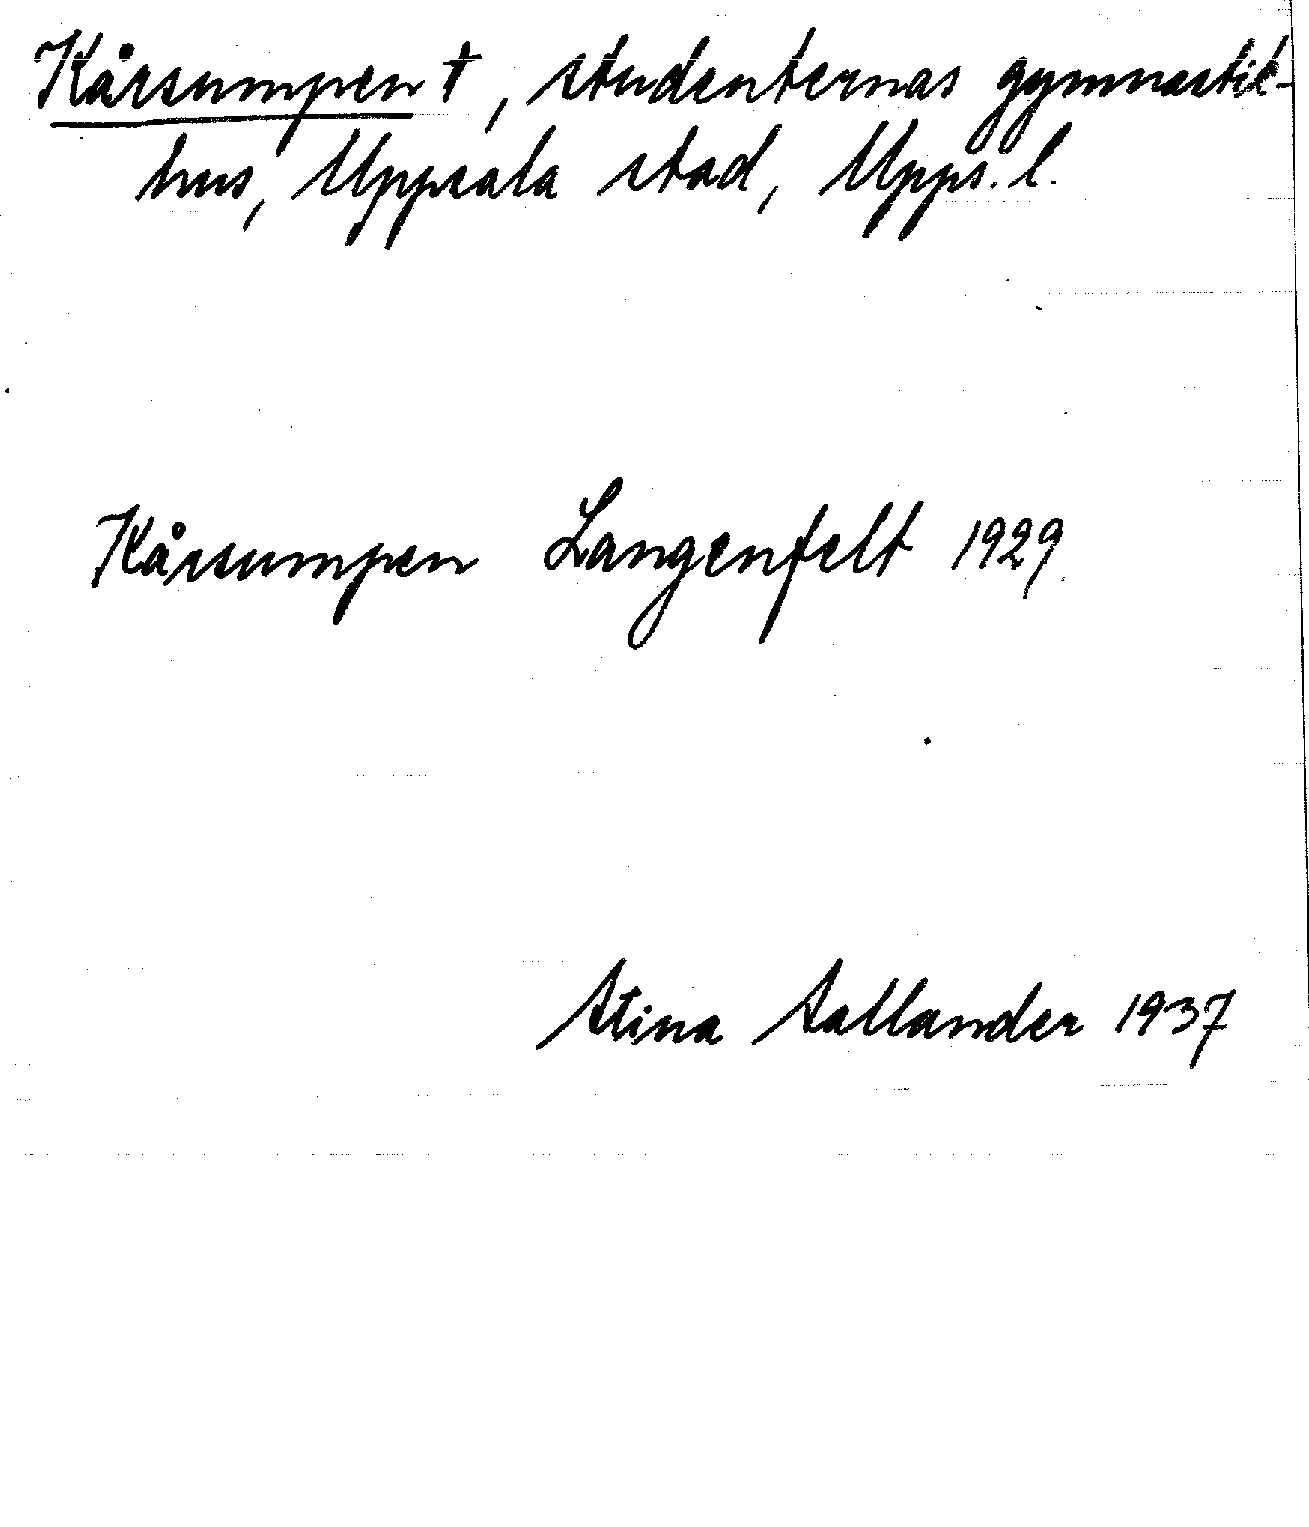 Kårsumpen †, studenternas gymnastik-
hus, Uppsala stad, Upps. l.
Kårsumpen Langenfelt 1929
Stina Sallander 1937